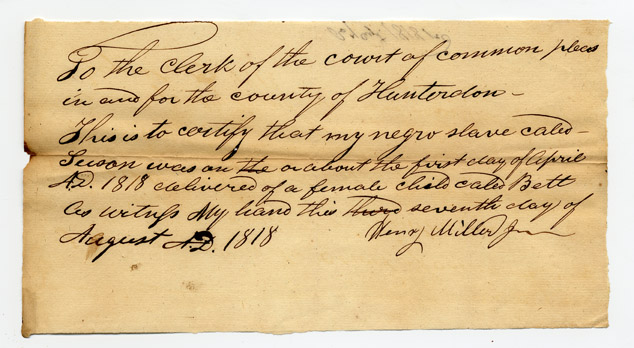 To the Clerk of the court of common pleas
in and for the county of Hunterdon –
This is to certify that my negro slave caled
was on the or about the first day of April
A.D. 1818 delivered of a female child caled Bett
As witness My hand this third seventh day of
August A.D. 1818 Henry Miller Jr